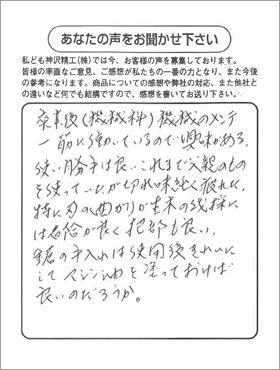 あなたの声をお聞かせ下さい
私ども神沢精工(株)では今、お客様の声を募集しております。
皆様の率直なご意見、ご感想が私たちの一番の力となり、また今後
の参考になります。商品についての感想や弊社の対応、また他社と
の違いなど何でも結構ですので、感想を書いてお送り下さい。
卒業後(機械科)機械のメンテ
一筋に働いているので興味がある。
使い勝手は良い これまで父親のもの
を使っていたが切れ味鈍く疲れた。
特に刃の曲がりが生木の伐採に
は具合が良く 把部も良い。
鋸の手入れは使用後きれいに
して マシン油を塗っておけば
良いのだろうか。